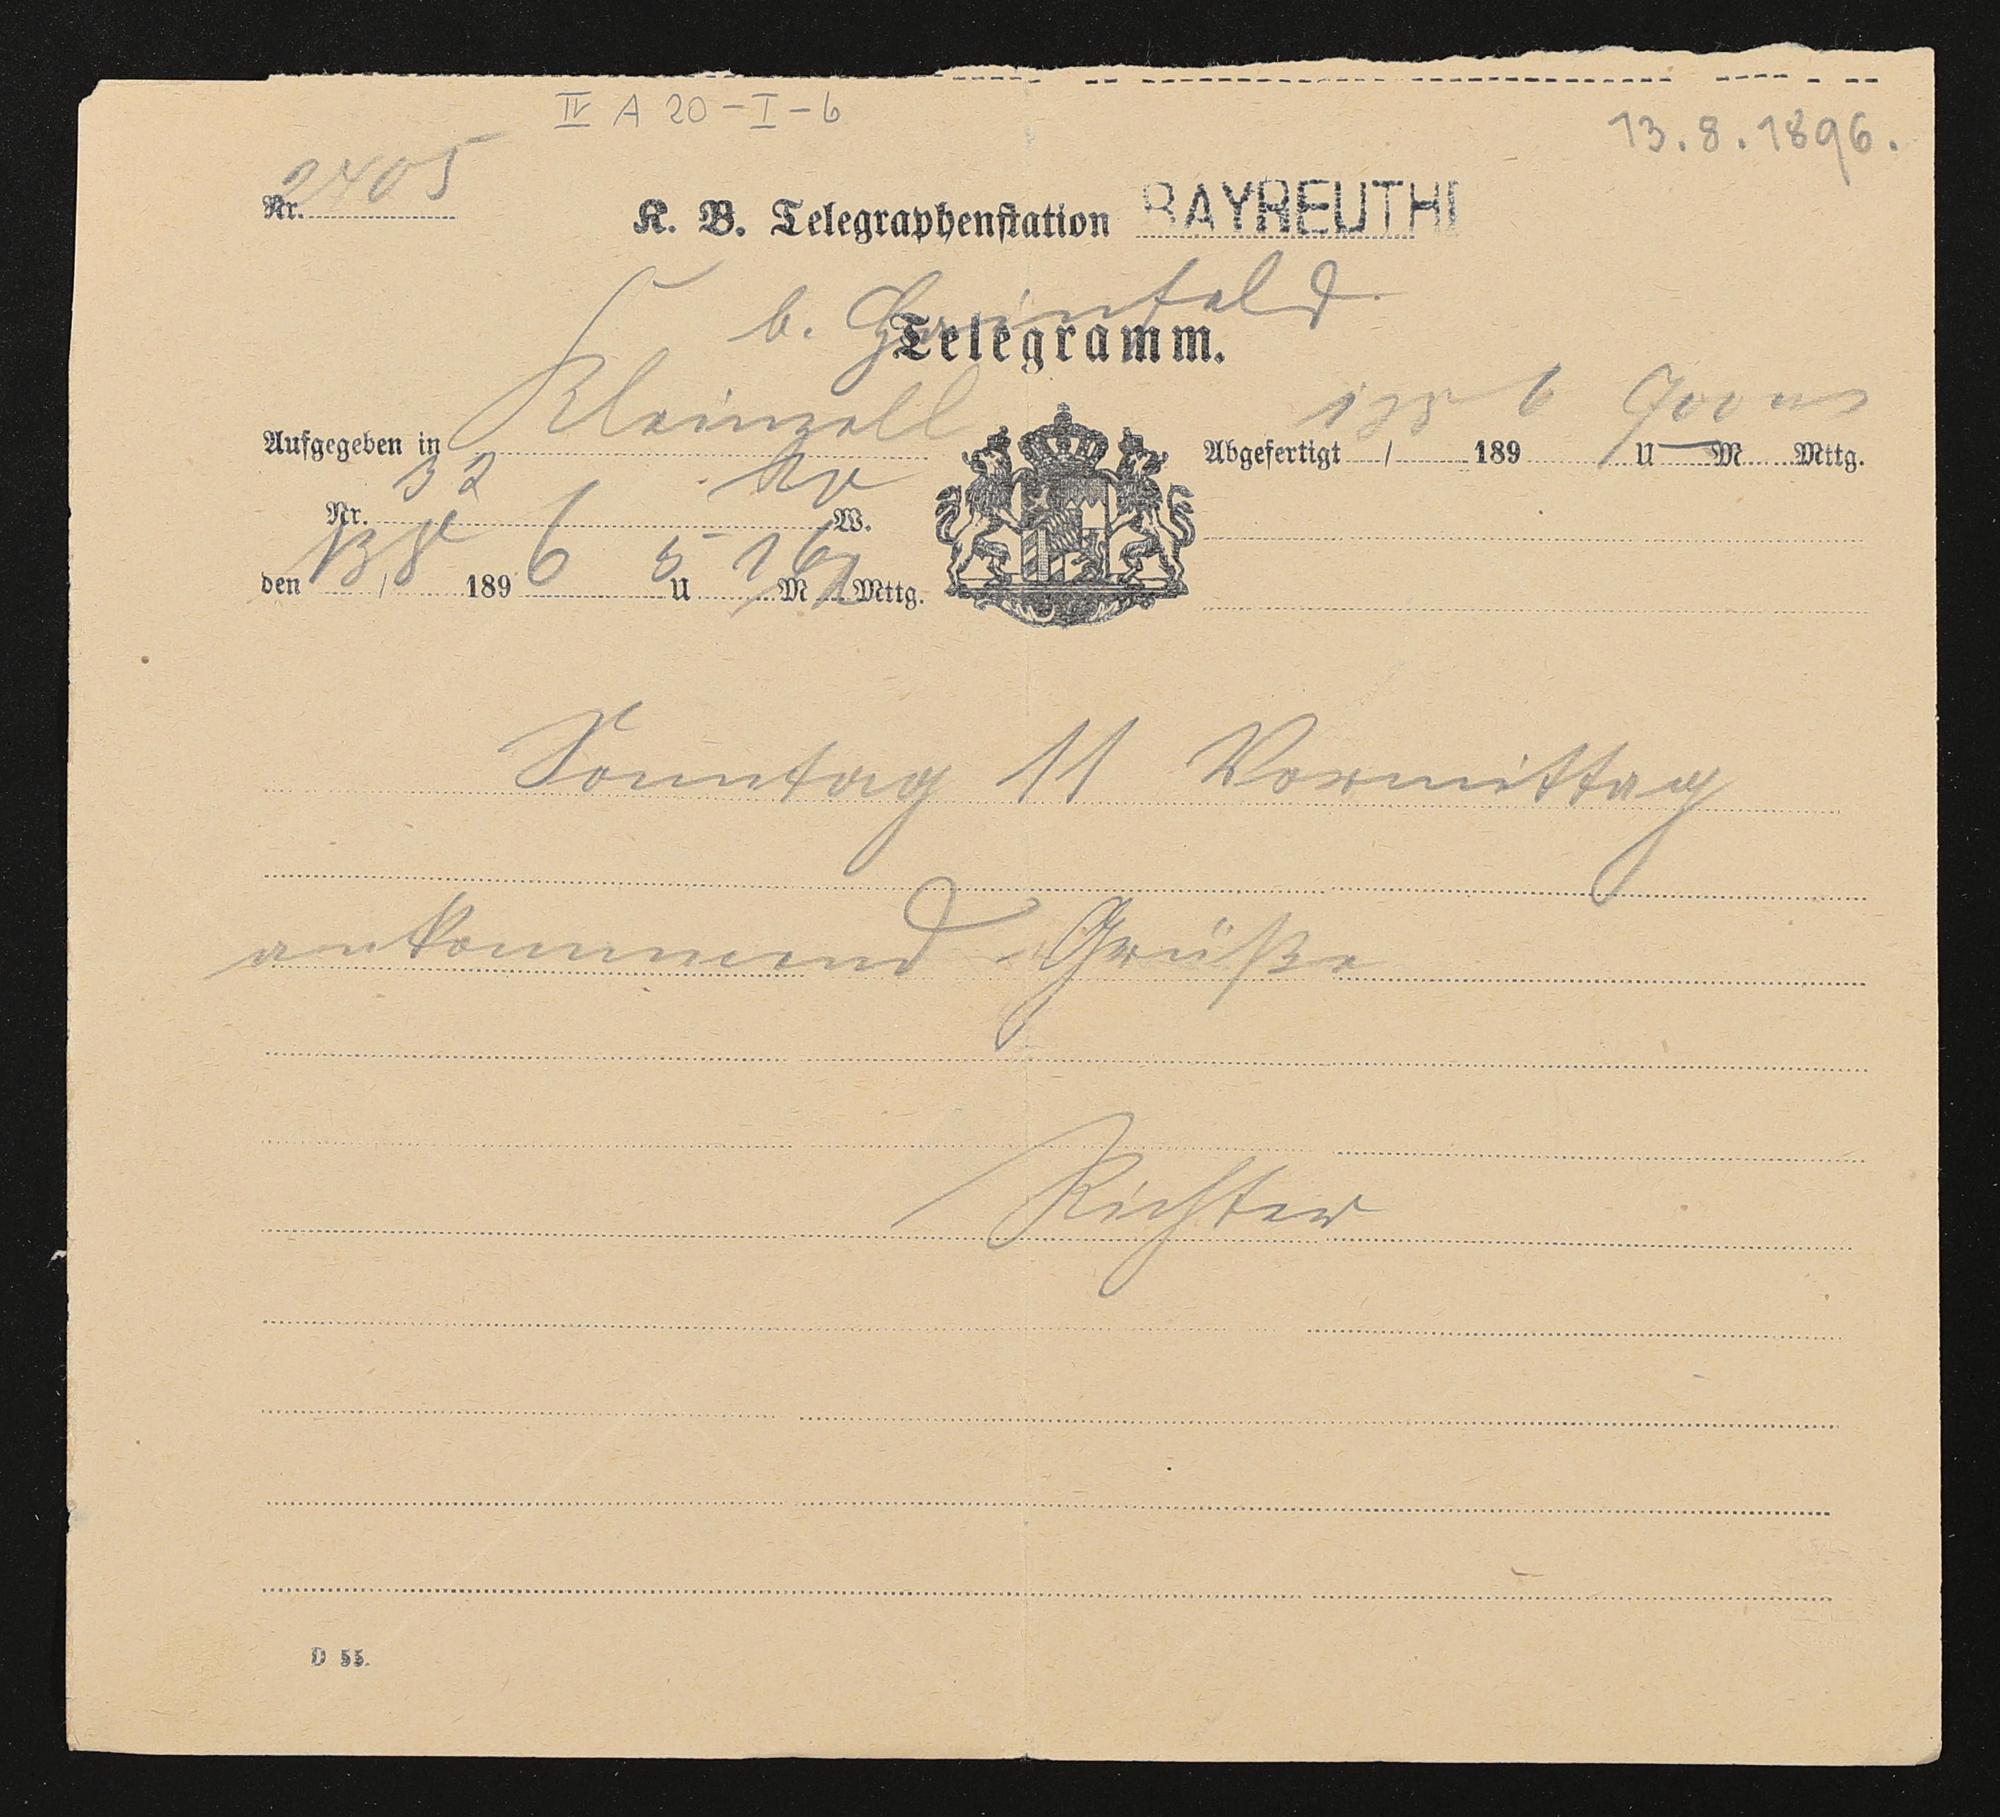 IV A 20-I-6
13.8.1896.
Nr. 2405
K. B. Telegraphenstation BAYREUTH
b. Hainfeld.
Telegramm.
Aufgegeben in Kleinzell
Abgefertigt 13/8 1896 7 U M Mttg.
Nr. 32 W.
den 13/8 1896 5 U 16 M N Mttg.
Sonntag 11 Vormittag
ankommend Grüße
Richter
D 55.